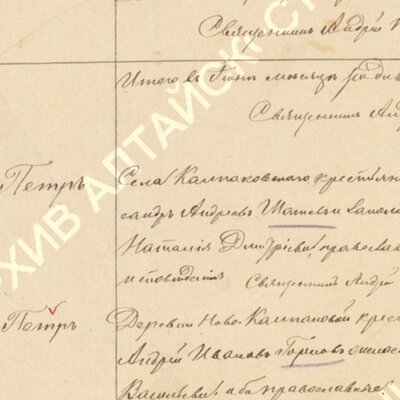 Священникъ Андрей
Итого въ Іюнѣ мѣсяцѣ родив
Священникъ Анд
Петръ
Села Калпаковскаго крестьян
сандръ Андреевъ и законн
Наталія Дмитріева, православ
исповѣданія Священникъ Андрей
Петръ
Деревни Ново Калпаковой крес
Андрей Ивановъ
Васильева, оба православнаго
АРХИВ АЛТАЙСКО